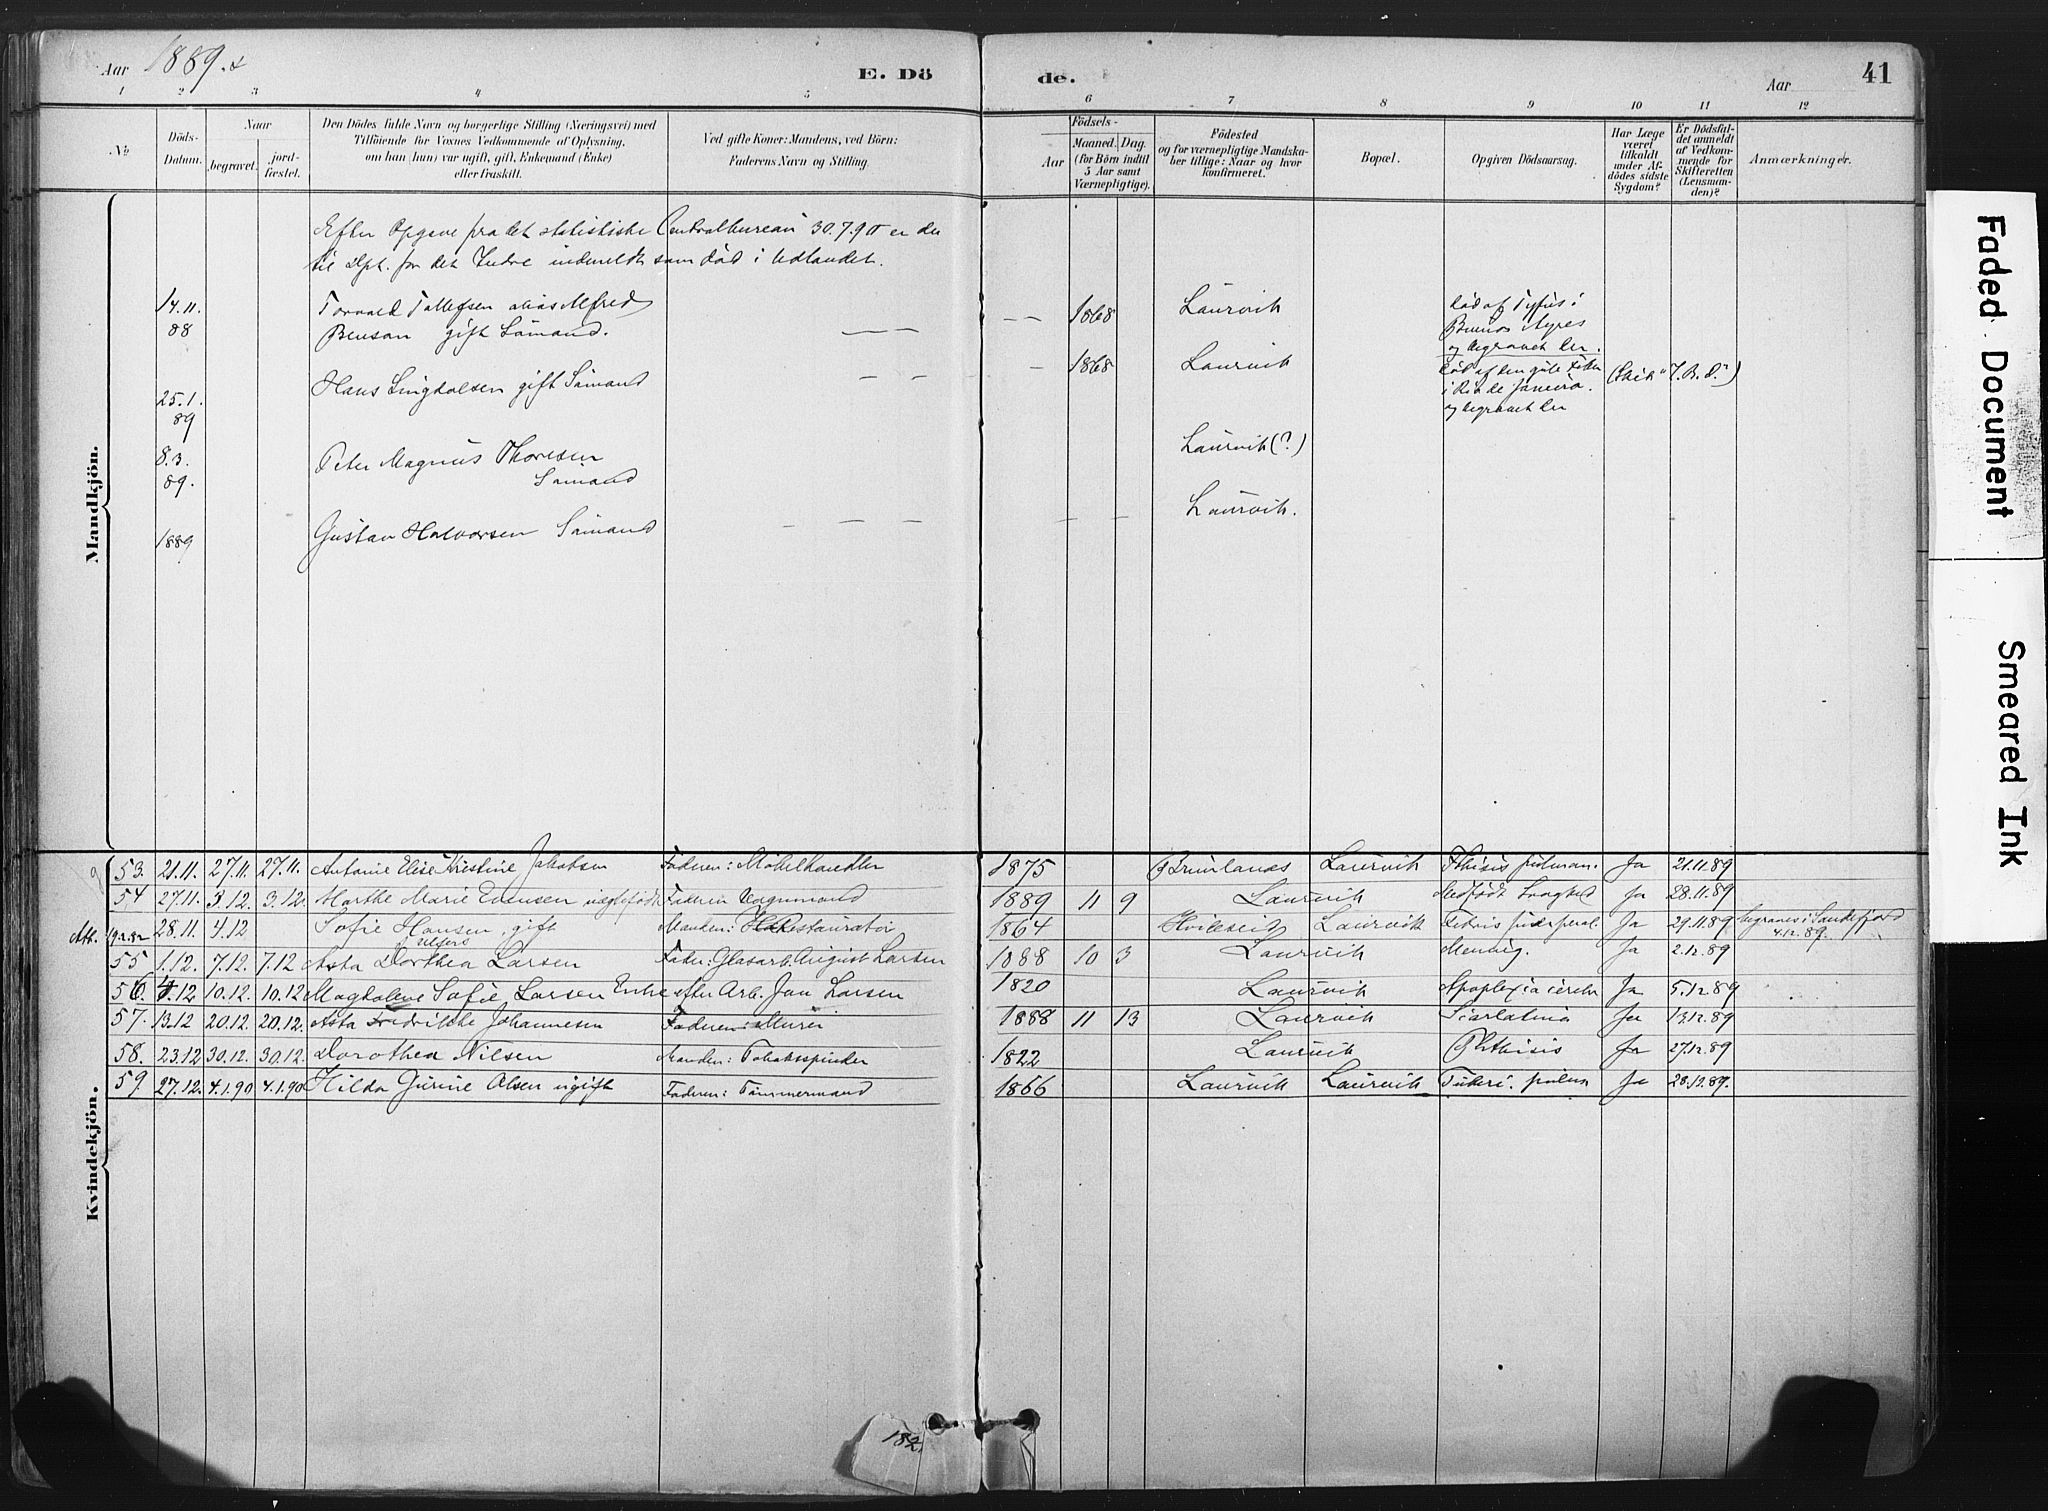 Aar 1889. E. Dö de. Aar 41
1 2 3 4 5 6 7 8 9 10 11 12
No
Döds-
Datum.
Naar
begravet.
jord-
fæstet.
Den Dödes fulde Navn og borgerlige Stilling (Næringsvei) med
Tilföiende for Voxnes Vedkommende af Oplysning,
om han (hun) var ugift, gift, Enkemand (Enke)
eller fraskilt.
Ved gifte Koner: Mandens, ved Börn:
Faderens Navn og Stilling.
Födsels-
Aar
Maaned. Dag.
(for Börn indtil
5 Aar samt
Værnepligtige).
Födested
og for værnepligtige Mandska-
ber tillige: Naar og hvor
konfirmeret.
Bopæl.
Opgiven Dödsaarsag.
Har Læge
været
tilkaldt
under Af-
dödes sidste
Sygdom?
Er Dödsfal-
det anmeldt
af Vedkom-
mende for
Skifteretten
(Lensman-
den)?
Anmærkninger.
Mandkjön.
Efter Opgave fra det statistiske Centralbureau 30.7.90 er de
til Dpt. for det Indre indmeldt som död i Udlandet.
14.11. 88 Torvald Tollefsen alias Alfred
Benson gift Sömand. 1868 Laurvik död af Tyfus i
Buenos Ayres
og begravet der.
25.1. 89 Hans Lingdolsen gift Sömand 1868 Laurvik död af den gule Feber
i Rio de Janeiro.
og begravet der
8.3. 89. Peter Magnus Thoresen
Sömand Laurvik (?)
1889 Gustav Halvorsen Sömand Laurvik.
Kvindekjön.
53. 21.11. 27.11. 27.11. Antonie Elise Kristine Jakobsen Faderen: Möbelhandler 1875 Brunlanæs Laurvik Fthisis pulmon. Ja 21.11.89
54 27.11. 3.12. 3.12. Marthe Marie Evensen uægtefödt Faderen Vognmand 1889 11 9 Laurvik Medfödt Svaghed Ja 28.11.89
Att. 28.11. 4.12 Sofie Hansen, gift Manden: Restauratör 1864 Kvileseid Laurvik Febris puerperal. Ja 29.11.89 begraves i Sandefjord
4.12.89.
55 1.12. 7.12. 7.12 Asta Dorthea Larsen Fader: Glasarb. August Larsen 1888 10 3 Laurvik Mening. Ja 2.12.89
56. 4.12 10.12. 10.12 Magdalene Sofie Larsen Enke efter Arb. Jan Larsen 1820 Laurvik Apoplexia cerebr Ja 5.12.89
57. 13.12 20.12. 20.12. Asta Fredrikke Johannesen Faderen: Murer 1888 11 13 Laurvik Scarlatina Ja 13.12.89
58. 23.12 30.12. 30.12. Dorothea Nilsen Manden: Tobaksspinder 1822 Laurvik Phthisis Ja 27.12.89
59. 27.12. 4.1.90 4.1.90 Hilda Gurine Olsen ugift Faderen: Tömmermand 1866 Laurvik Laurvik Tuberc. pulm Ja 28.12.89.
182
Faded Document
Smeared Ink